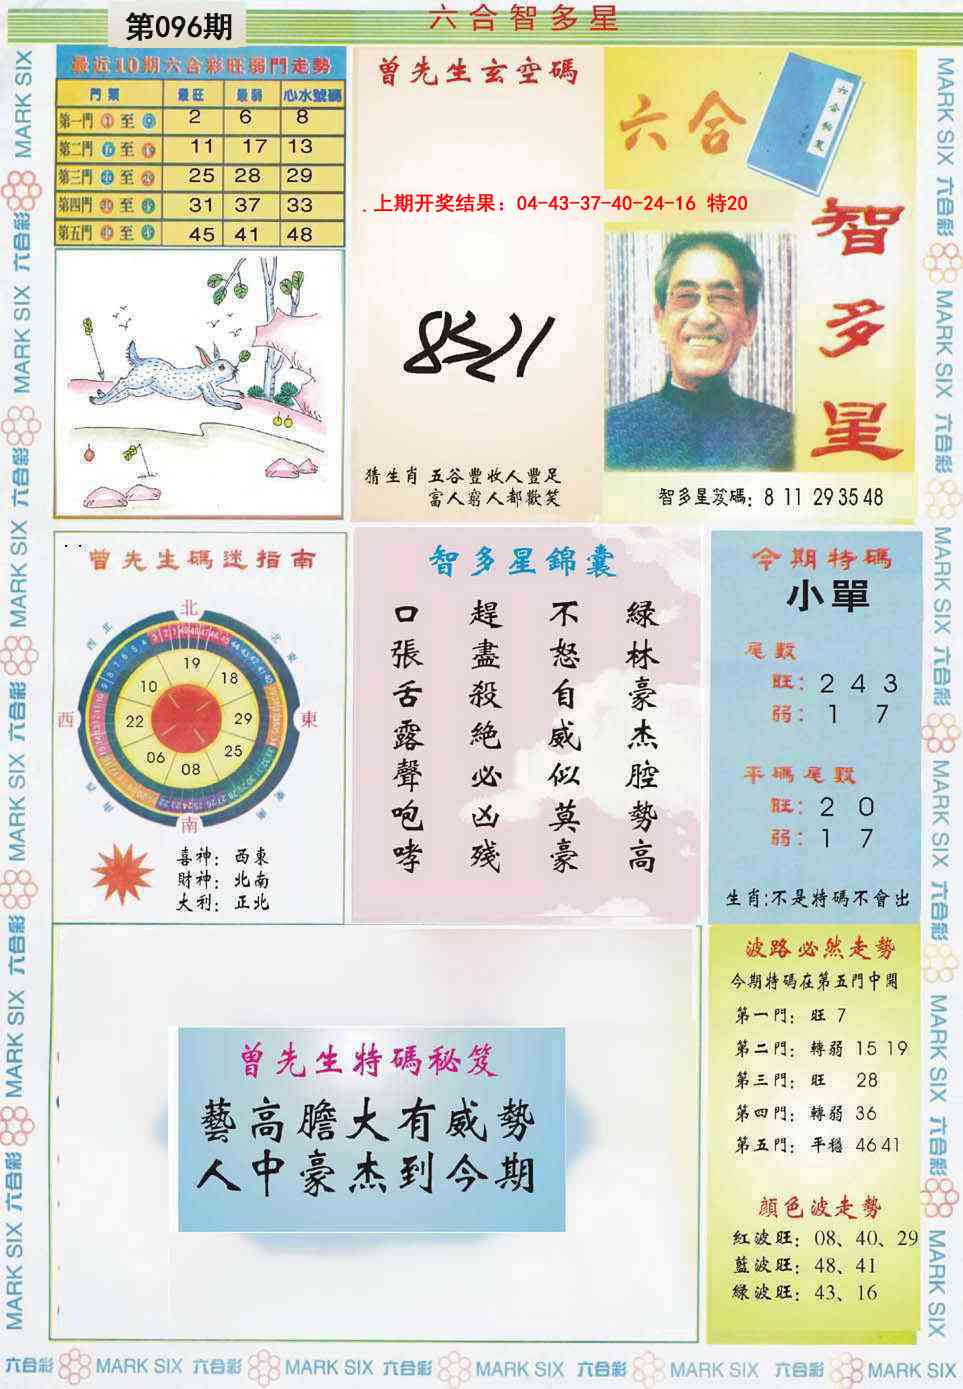 第096期
六合智多星
最近10期六合彩旺弱門走勢
門類 最旺 最弱 心水號碼
第一門 至 2 6 8
第二門 至 11 17 13
第三門 至 25 28 29
第四門 至 31 37 33
第五門 至 45 41 48
曾先生玄空碼
上期开奖结果：04-43-37-40-24-16 特20
猜生肖 五谷豐收人豐足
富人窮人都歡笑
六合
智多星
智多星笈碼：8 11 29 35 48
曾先生碼迷指南
北
西
東
南
19
18
29
25
08
06
22
10
喜神：西東
財神：北南
大利：正北
智多星錦囊
綠林豪杰腔勢高
不怒自威似莫豪
趕盡殺絕必凶殘
口張舌露聲咆哮
今期特碼
小單
尾數
旺：2 4 3
弱：1 7
平碼尾數
旺：2 0
弱：1 7
生肖:不是特碼不會出
曾先生特碼秘笈
藝高膽大有威勢
人中豪杰到今期
波路必然走勢
今期特碼在第五門中開
第一門：旺 7
第二門：轉弱 15 19
第三門：旺 28
第四門：轉弱 36
第五門：平穩 46 41
顔色波走勢
紅波旺：08、40、29
藍波旺：48、41
綠波旺：43、16
六合彩 MARK SIX 六合彩 MARK SIX 六合彩 MARK SIX 六合彩 MARK SIX 六合彩 MARK SIX